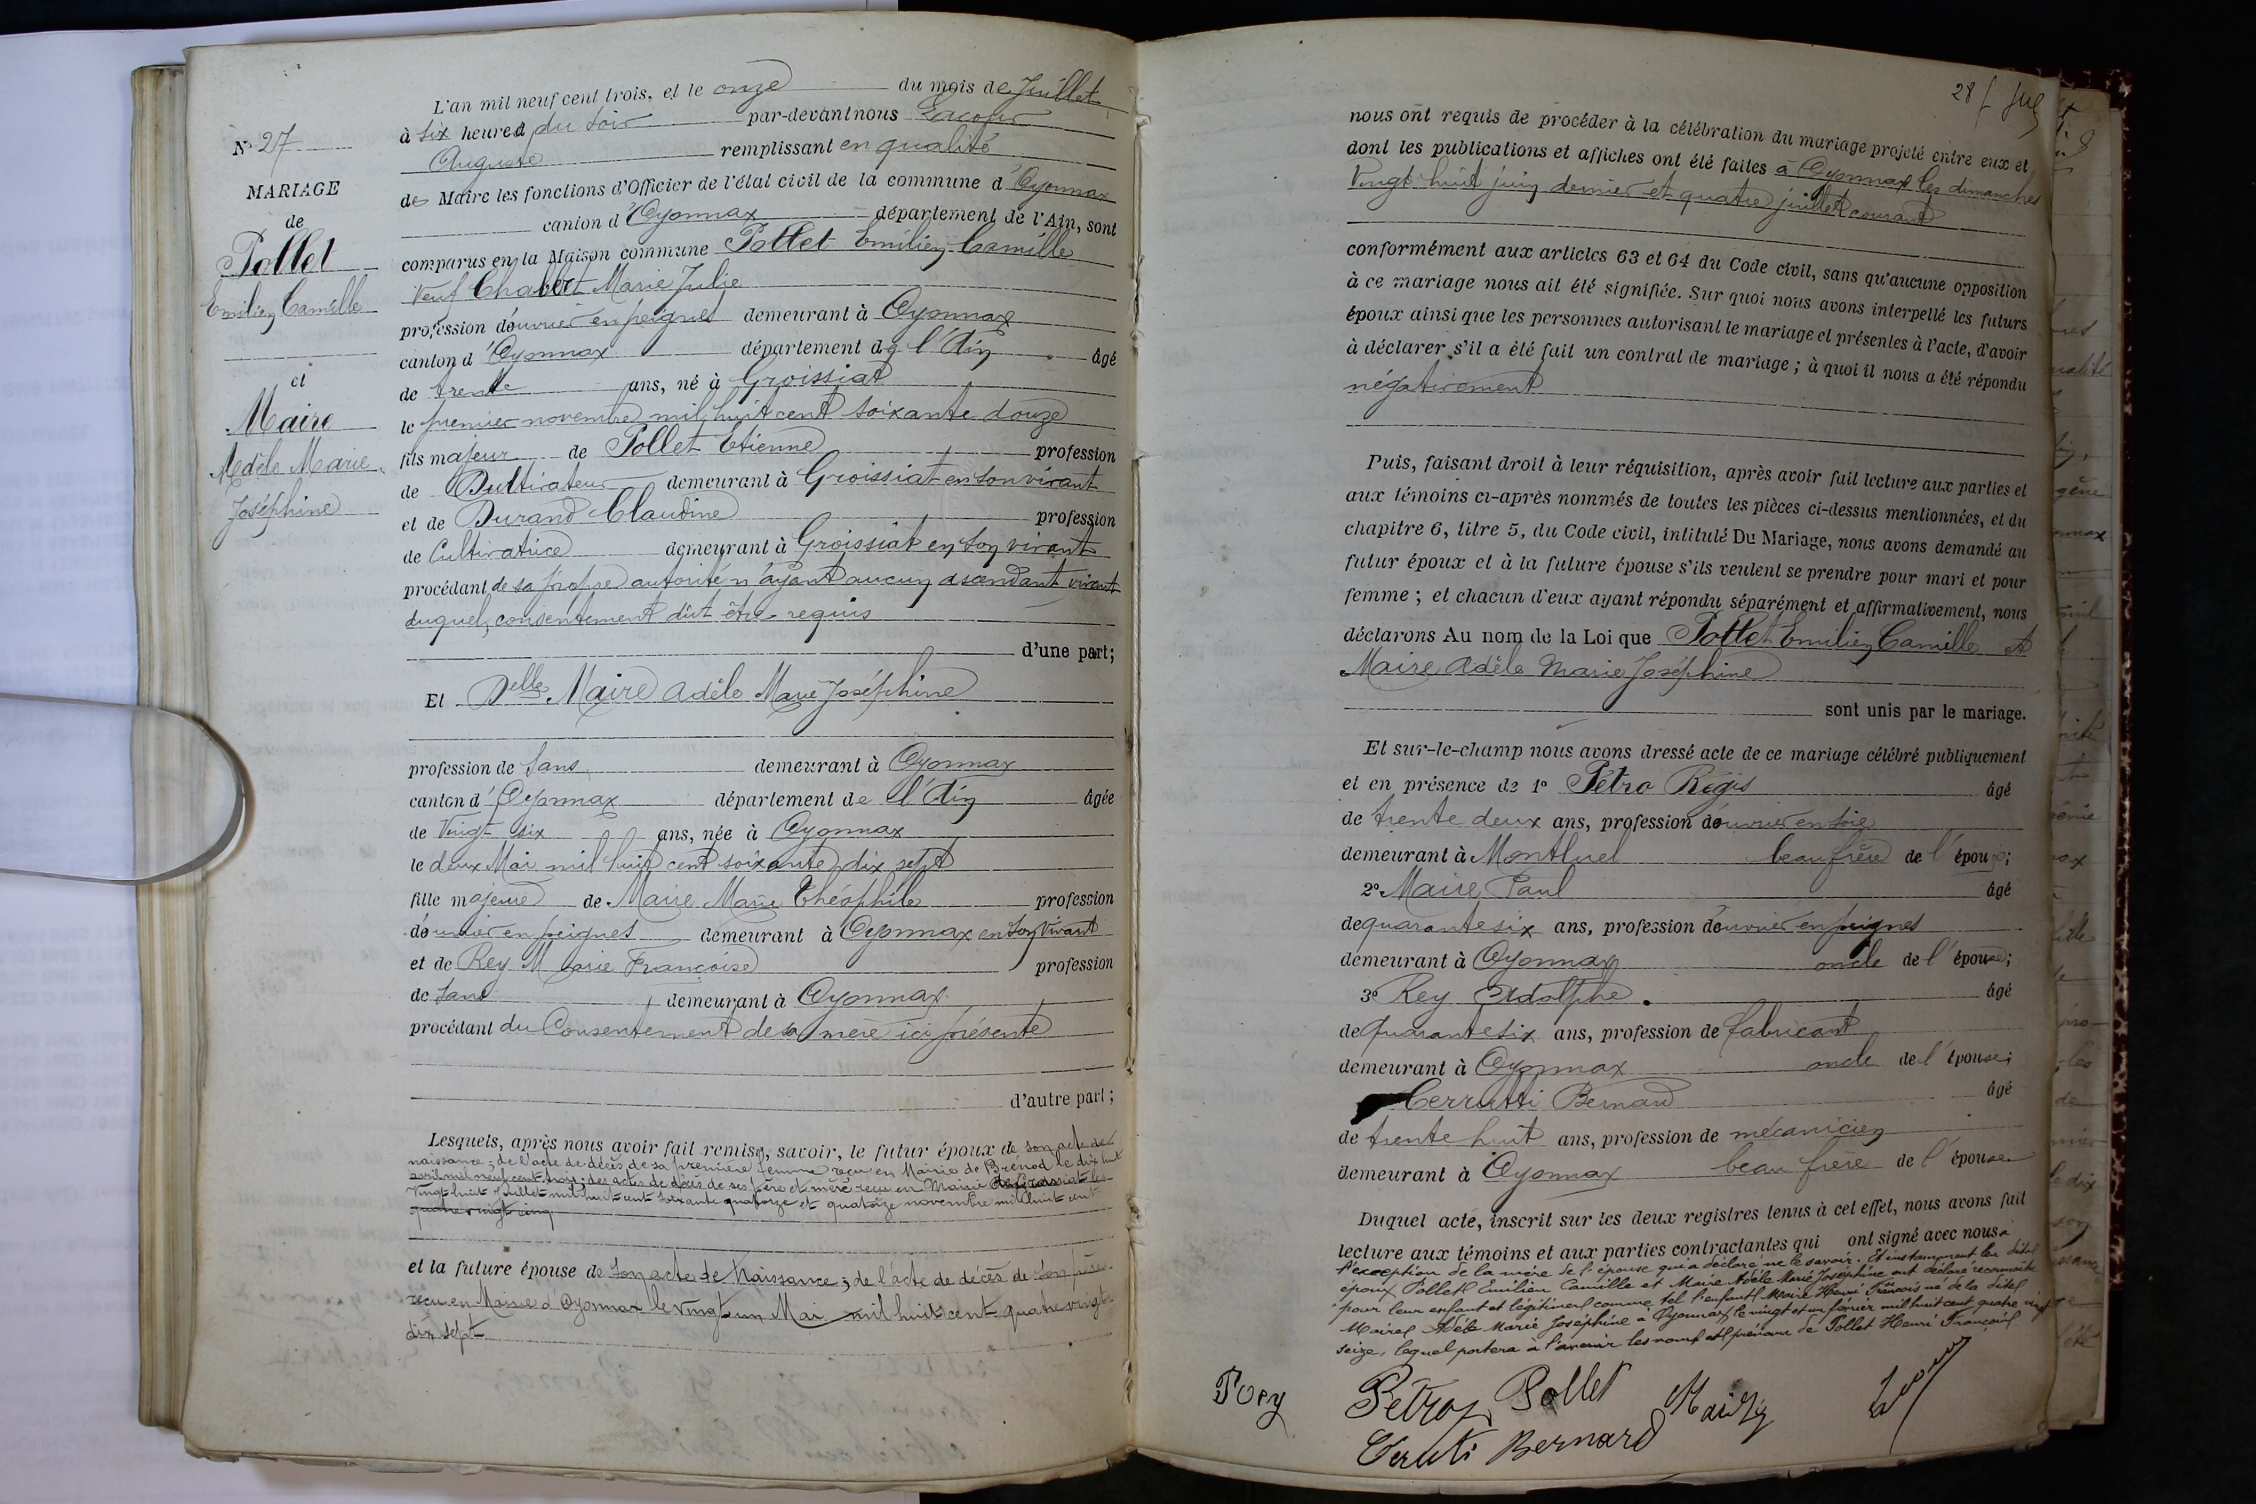 N° 27
MARIAGE
de
Pollet
Emilien Camille
et
Maire
Adèle Marie
Joséphine
L'an mil neuf cent trois, et le onze du mois de Juillet
à six heures du soir par-devant nous Lacour
Auguste remplissant en qualité
de Maire les fonctions d'Officier de l'état civil de la commune d'Oyonnax
canton d'Oyonnax département de l'Ain, sont
comparus en la Maison commune Pollet Emilien Camille
Veuf Chabert Marie Julie
profession d'ouvrier en peignes demeurant à Oyonnax
canton d'Oyonnax département de l'Ain âgé
de trente ans, né à Groissiat
le premier novembre mil huit cent soixante douze
fils majeur de Pollet Etienne profession
de Cultivateur demeurant à Groissiat en son vivant
et de Durand Claudine profession
de Cultivatrice demeurant à Groissiat en son vivant
procédant de sa propre autorité n'ayant aucun ascendant vivant
duquel, consentement dût être requis
d'une part;
Et Delle Maire Adèle Marie Joséphine
profession de sans demeurant à Oyonnax
canton d'Oyonnax département de l'Ain âgée
de Vingt six ans, née à Oyonnax
le deux Mai mil huit cent soixante dix sept
fille majeure de Maire Marie Théophile profession
d'ouvrier en peignes demeurant à Oyonnax en son vivant
et de Rey Marie Françoise profession
de sans demeurant à Oyonnax
procédant du Consentement de sa mère ici présente
d'autre part;
Lesquels, après nous avoir fait remise, savoir, le futur époux de son acte de
naissance; de l'acte de décès de sa première femme reçu en Mairie de Brénod le dix huit
avril mil neuf cent trois; des actes de décès de ses père et mère reçu en Mairie de Groissiat les
vingt huit Juillet mil huit cent soixante quatorze et quatorze novembre mil huit cent
quatre vingt cinq
et la future épouse de son acte de Naissance; de l'acte de décès de son père
reçu en Mairie d'Oyonnax le vingt un Mai mil huit cent quatre vingt
dix sept
28
nous ont requis de procéder à la célébration du mariage projeté entre eux et
dont les publications et affiches ont été faites à Oyonnax les dimanches
Vingt huit juin dernier et quatre juillet courant
conformément aux articles 63 et 64 du Code civil, sans qu'aucune opposition
à ce mariage nous ait été signifiée. Sur quoi nous avons interpellé les futurs
époux ainsi que les personnes autorisant le mariage et présentes à l'acte, d'avoir
à déclarer s'il a été fait un contrat de mariage; à quoi il nous a été répondu
négativement
Puis, faisant droit à leur réquisition, après avoir fait lecture aux parties et
aux témoins ci-après nommés de toutes les pièces ci-dessus mentionnées, et du
chapitre 6, titre 5, du Code civil, intitulé Du Mariage, nous avons demandé au
futur époux et à la future épouse s'ils veulent se prendre pour mari et pour
femme; et chacun d'eux ayant répondu séparément et affirmativement, nous
déclarons Au nom de la Loi que Pollet Emilien Camille et
Maire Adèle Marie Joséphine
sont unis par le mariage.
Et sur-le-champ nous avons dressé acte de ce mariage célébré publiquement
et en présence de 1° Pétro Régis âgé
de trente deux ans, profession d'ouvrier en soie
demeurant à Montluel beau frère de l'épouse;
2° Maire Paul âgé
de quarante six ans, profession d'ouvrier en peignes
demeurant à Oyonnax oncle de l'épouse;
3° Rey Adolphe âgé
de quarante six ans, profession de fabricant
demeurant à Oyonnax oncle de l'épouse;
Cerrutti Bernard âgé
de trente huit ans, profession de mécanicien
demeurant à Oyonnax beau frère de l'épouse
Duquel acte, inscrit sur les deux registres tenus à cet effet, nous avons fait
lecture aux témoins et aux parties contractantes qui ont signé avec nous à
l'exception de la mère de l'épouse qui a déclaré ne le savoir. Et instamment les dits
époux Pollet Emilien Camille et Maire Adèle Marie Joséphine ont déclaré reconnaître
pour leur enfant et légitiment comme tel l'enfant Maire Henri François né de la dite
Maire Adèle Marie Joséphine à Oyonnax le vingt et un février mil huit cent quatre vingt
seize, lequel portera à l'avenir les noms et prénoms de Pollet Henri François
Pétro Pollet
Ceruti Bernard